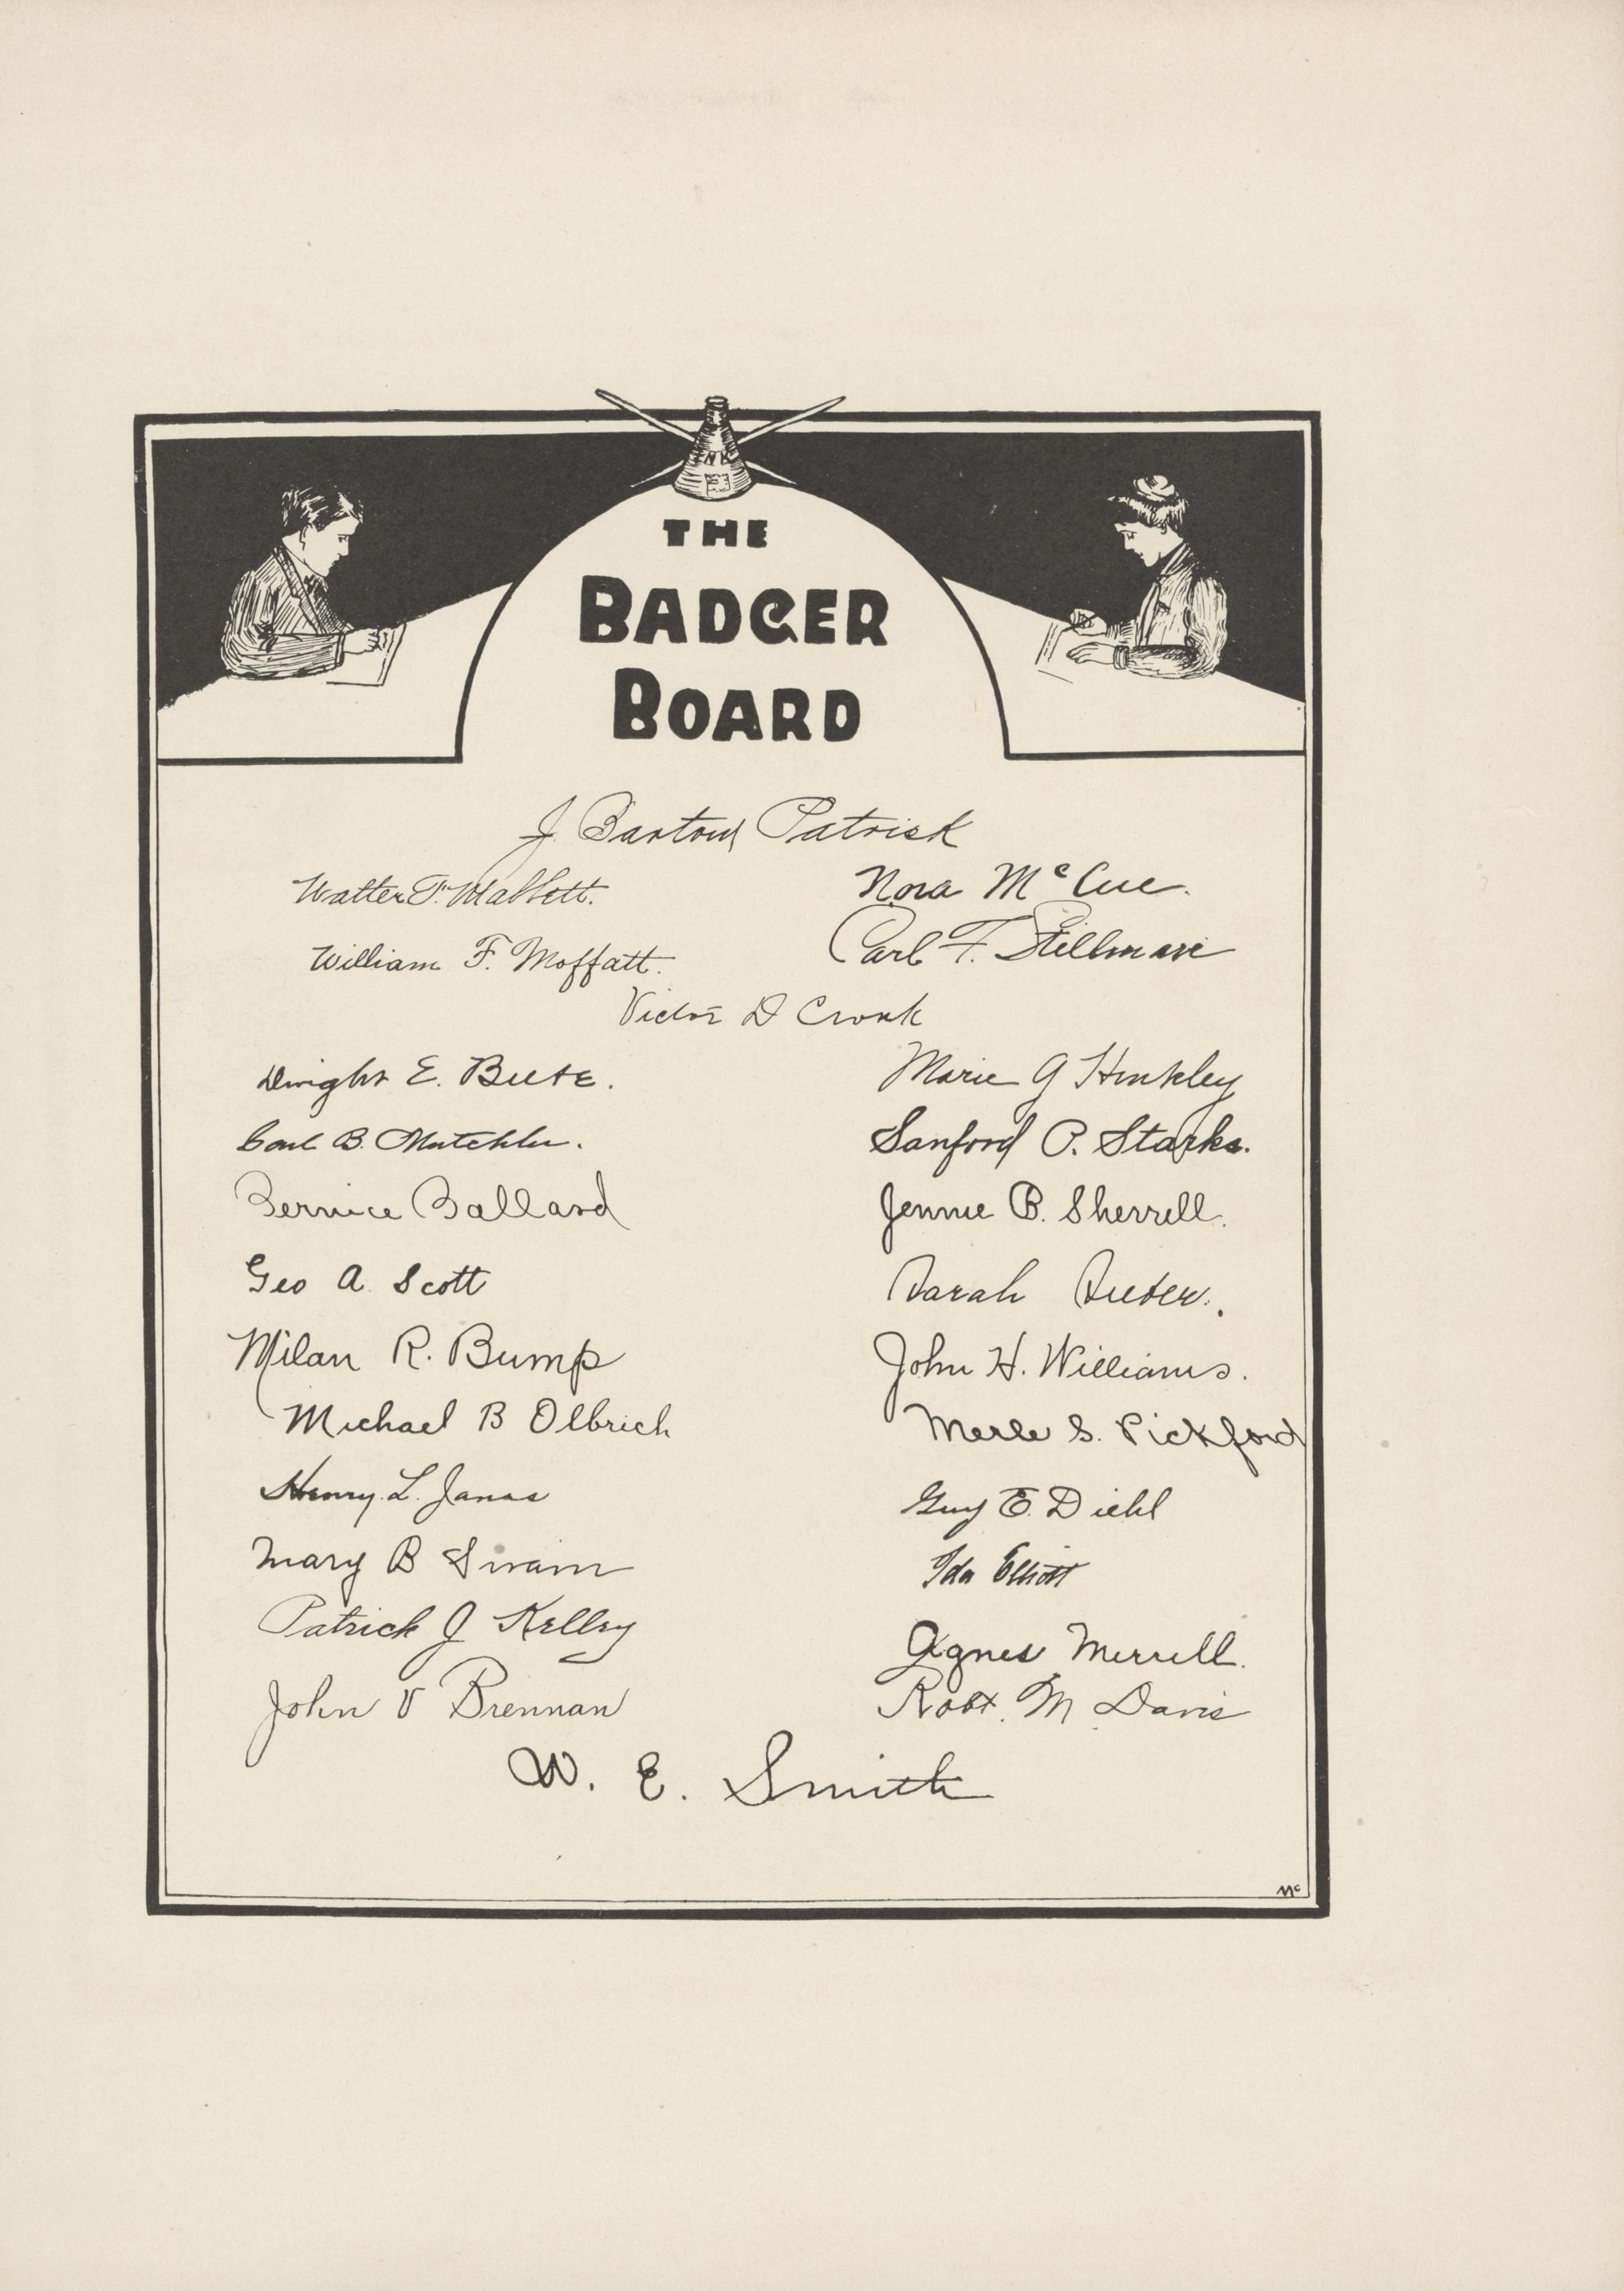 INK
THE
BADGER
BOARD
J. Bartow Patrick
Walter F. Mabbett. Nora McCue.
William F. Moffatt. Carl F. Stillman
Victor D Cronk
Dwight E. Beebe. Marie G Hinkley
Carl B. Mutchler. Sanford P. Starks.
Bernice Ballard Jennie B. Sherrill.
Geo A. Scott Sarah
Milan R. Bump John H. Williams.
Michael B Olbrich Merle S. Pickford
Henry L. Janes Guy E. Diehl
Mary B Swain Ida Elliott
Patrick J Kelley Agnes Merrill.
John V Brennan Robt. M Davis
W. E. Smith
Mc